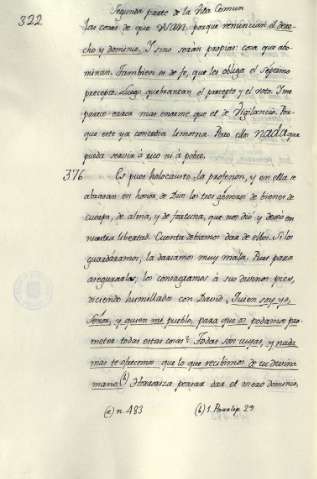 322
Segunda parte de la Vida Comun
las cosas de que usan porque renuncian el dere-
cho y dominio. Y sino serán propias cosa que abo-
minan. Tambien es de fe, que les obliga el septimo
precepto. Luego quebrantan el precepto y el voto. Y me
parece cosa mas enorme que el de Vigilancio. Por-
que este ya concedia limosna. Pero ella nada que
pueda servir á rico ni á pobre.
376 Es pues holocausto la profesion, y en ella se
abrasan en honor de Dios los tres géneros de bienes de
cuerpo, de alma, y de fortuna, que nos dió y dexó en
nuestra libertad. Cuenta debiamos dar de ellos. Si los
guardaramos, la dariamos muy mala. Pues para
asegurarlos, los consagramos á sus divinos pies,
diciendo humillados con David. Quien soy yo,
Señor, y quien mi pueblo, para que os podamos pro-
meter todas estas cosas? Todas son tuyas, y nada
mas te ofrecemos que lo que recibimos de tu divina
mano (b)
pensar dar el mero dominio,
(a) n. 483 (b) 1. Paralip. 29